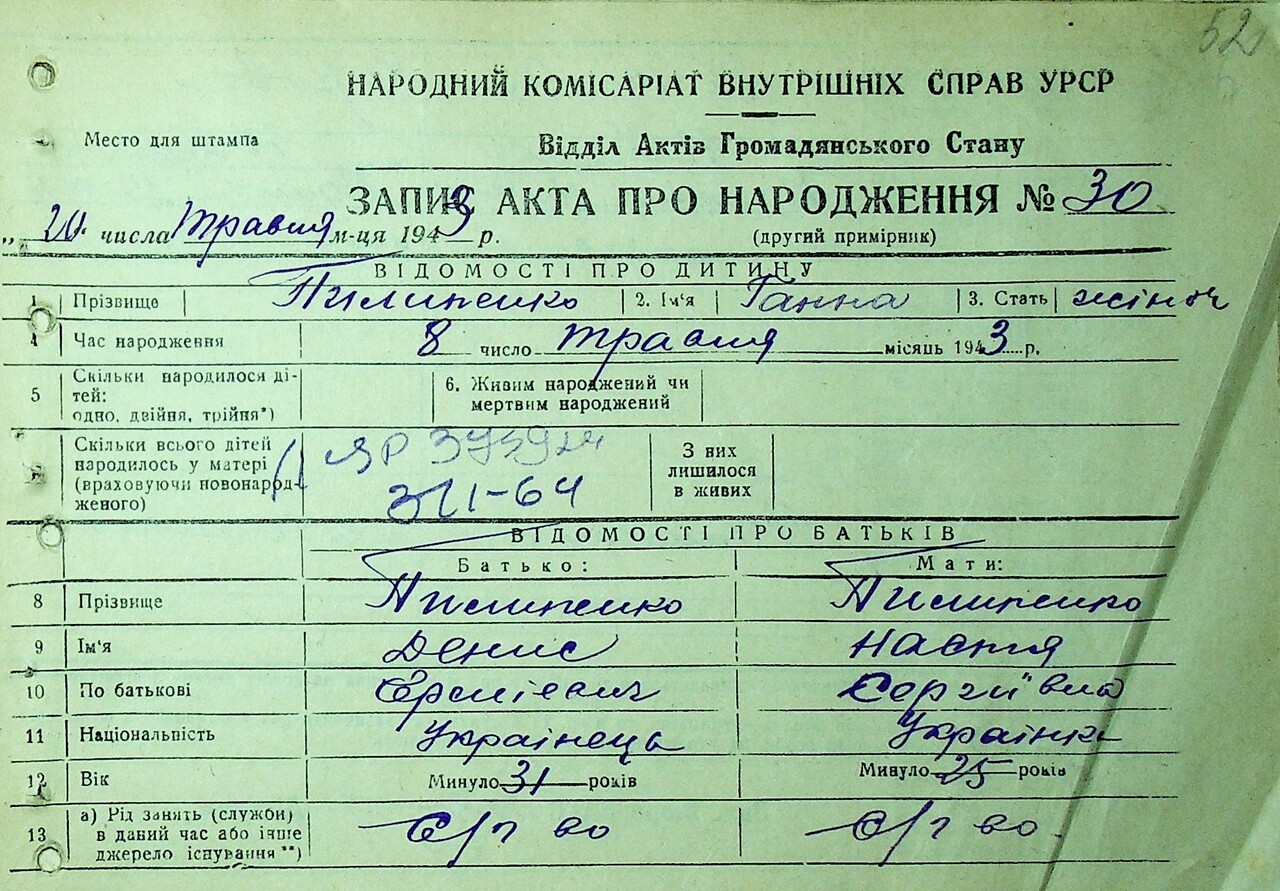 52
НАРОДНИЙ КОМІСАРІАТ ВНУТРІШНІХ СПРАВ УРСР
Место для штампа
Відділ Актів Громадянського Стану
ЗАПИС АКТА ПРО НАРОДЖЕННЯ № 30
„ 20 " числа Травня м-ця 1943 р. (другий примірник)
ВІДОМОСТІ ПРО ДИТИНУ
1 Прізвище Пилипенко 2. Ім'я Ганна 3. Стать жіноч
4 Час народження 8 число травня місяць 1943 р.
5 Скільки народилося ді-
тей:
одно, двійня, трійня*)
6. Живим народжений чи
мертвим народжений
Скільки всього дітей
народилось у матері
(враховуючи новонарод-
женого)
ЯР
З них
лишилося
в живих
ВІДОМОСТІ ПРО БАТЬКІВ
Батько: Мати:
8 Прізвище Пилипенко Пилипенко
9 Ім'я Денис Настя
10 По батькові Сергіївна
11 Національність Українець Українка
12 Вік Минуло 31 років Минуло 25 років
13 а) Рід занять (служби)
в даний час або інше
джерело існування **)
с/г во с/г во